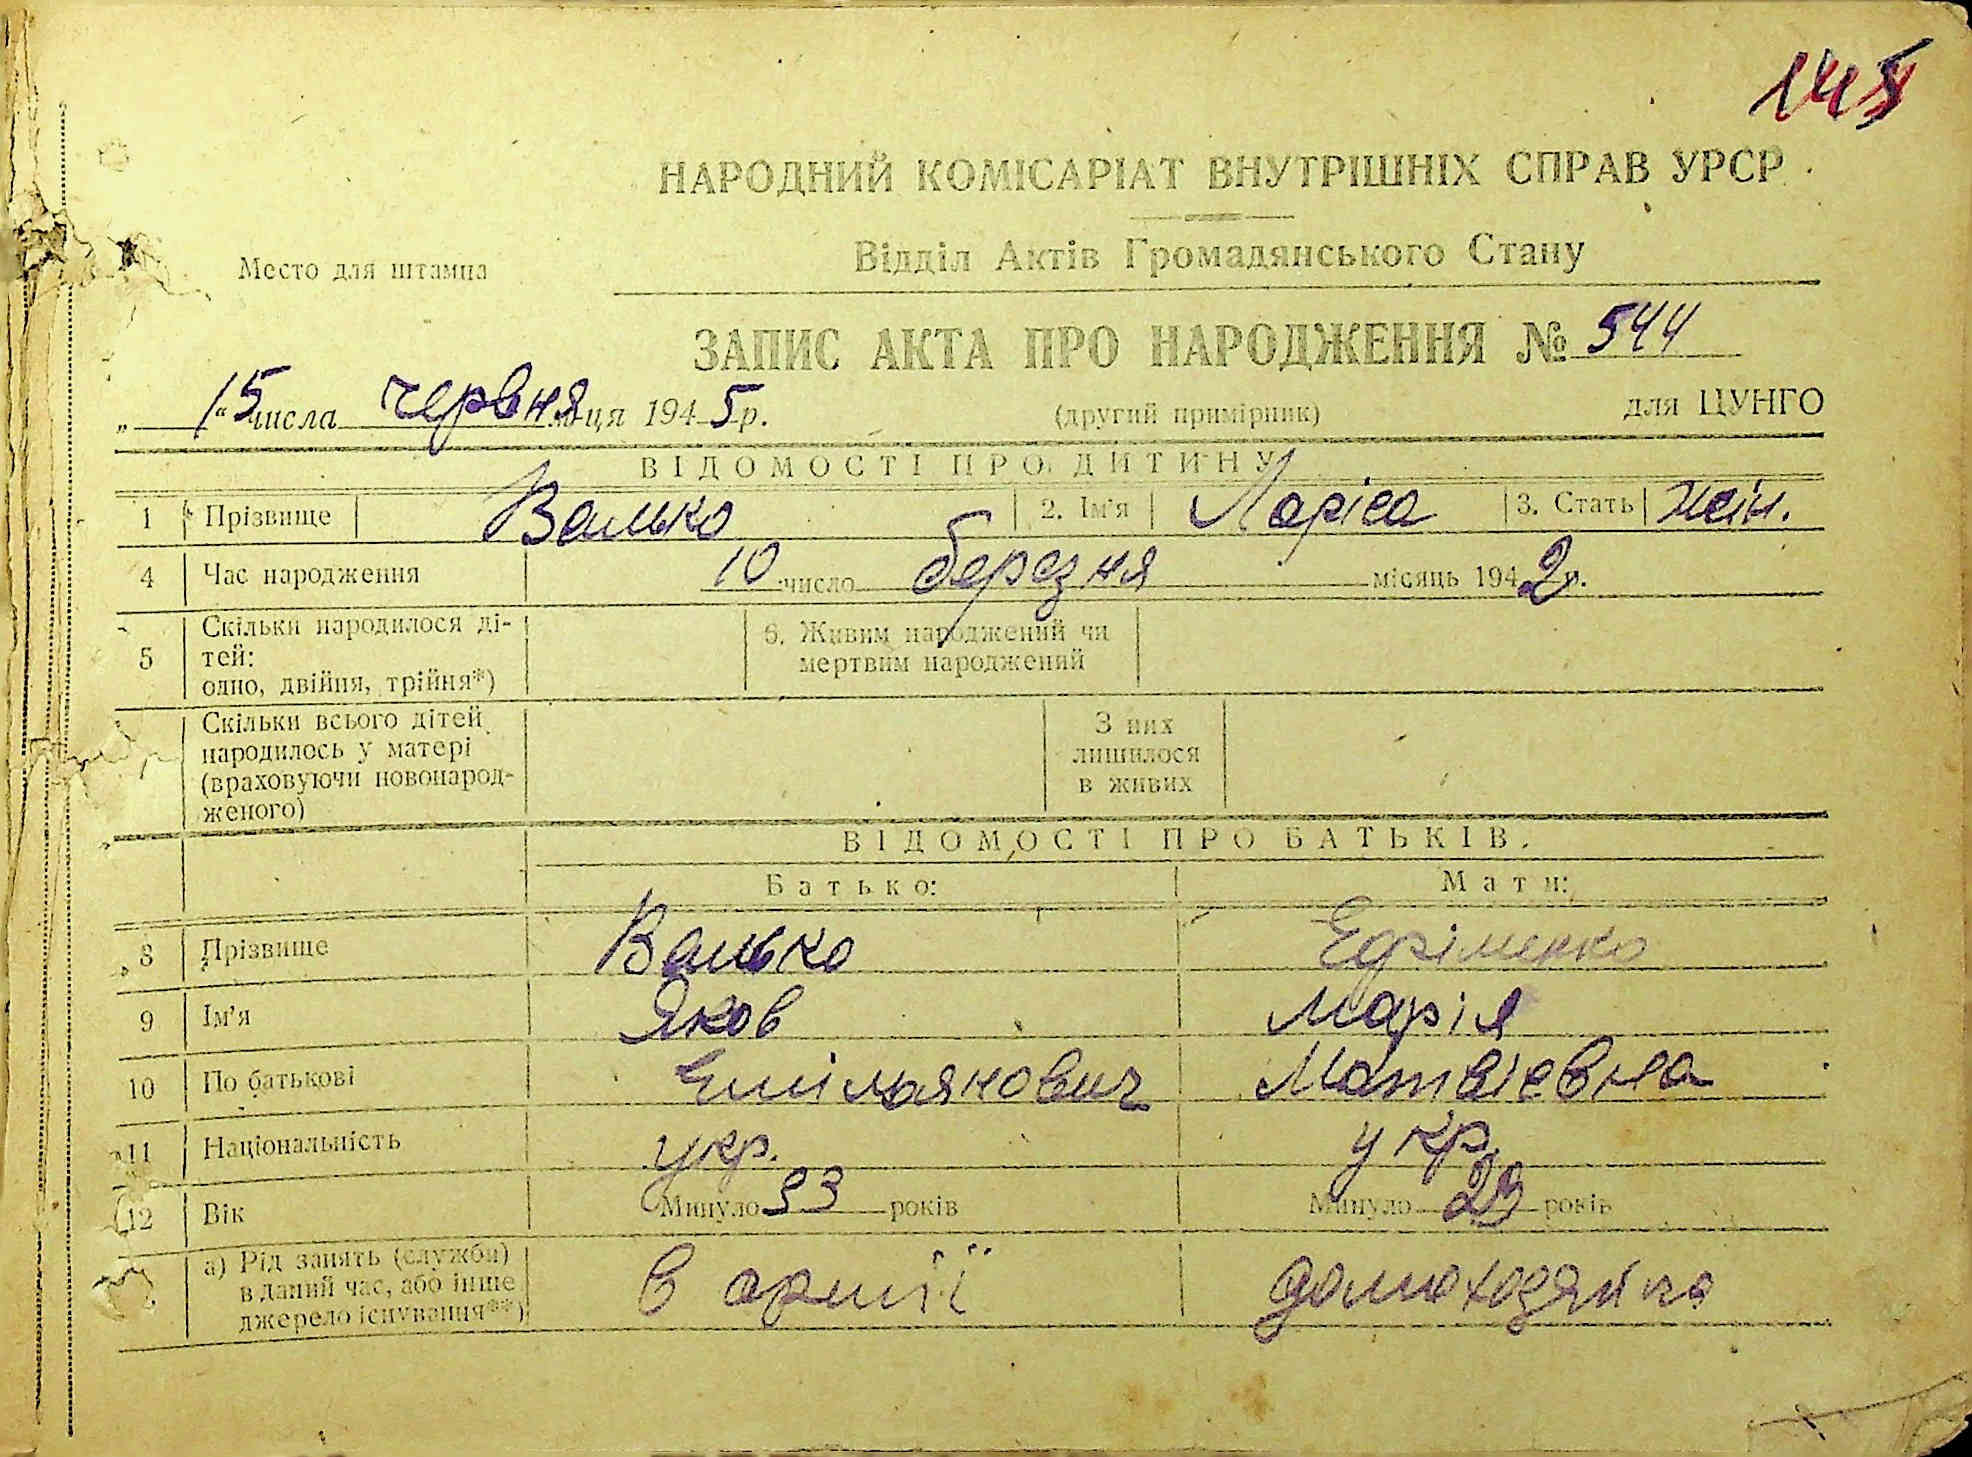 145
НАРОДНИЙ КОМІСАРІАТ ВНУТРІШНІХ СПРАВ УРСР
Место для штампа
Відділ Актів Громадянського Стану
ЗАПИС АКТА ПРО НАРОДЖЕННЯ № 544
„15“ числа червня м-ця 1945 р. (другий примірник) для ЦУНГО
ВІДОМОСТІ ПРО ДИТИНУ
1 Прізвище Валько 2. Ім'я Ларіса 3. Стать жін.
4 Час народження 10 число березня місяць 1942 р.
5 Скільки народилося ді-
тей:
одно, двійня, трійня*)
6. Живим народжений чи
мертвим народжений
Скільки всього дітей
народилось у матері
(враховуючи новонарод-
женого)
З них
лишилося
в живих
ВІДОМОСТІ ПРО БАТЬКІВ.
Батько: Мати:
8 Прізвище Валько Єфіменко
9 Ім'я Яков Марія
10 По батькові Емільянович Матвієвна
11 Національність укр. укр.
12 Вік Минуло 33 років Минуло 29 років
а) Рід занять (служби)
в даний час, або інше
джерело існування**)
в армії домохозяйка